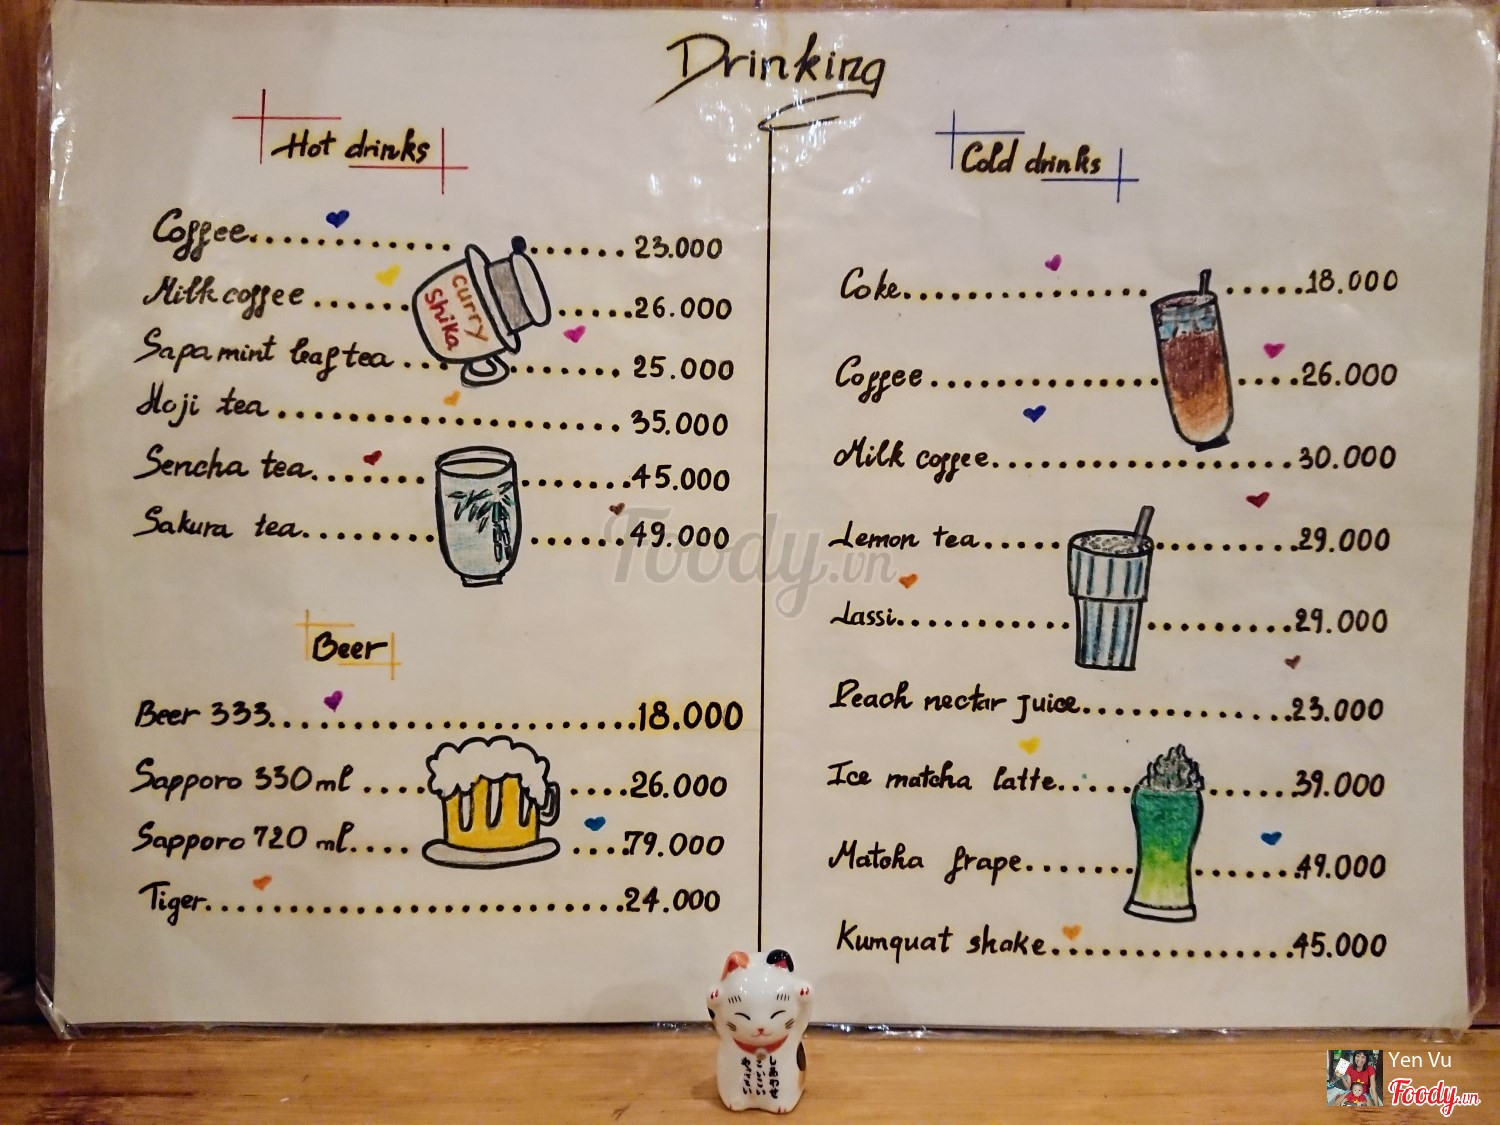 Drinking
Hot drinks
Coffee............ ...... 23.000
Milk coffee ...... ......26.000
Sapa mint leaf tea ... ....... 25.000
Hoji tea ..................... 35.000
Sencha tea....... .......45.000
Sakura tea........ ......49.000
curry
shika
Beer
Beer 333......................18.000
Sapporo 330 ml .... ....26.000
Sapporo 720 ml.... ....79.000
Tiger.......................24.000
Cold drinks
Coke.............. .....18.000
Coffee ............. ....26.000
Milk coffee...................30.000
Lemon tea..... .........29.000
Lassi.......... .........29.000
Peach nectar juice.............23.000
Ice matcha latte..... ......39.000
Matcha frape....... .......49.000
Kumquat shake...............45.000
Foody.vn
Yen Vu
Foody.vn